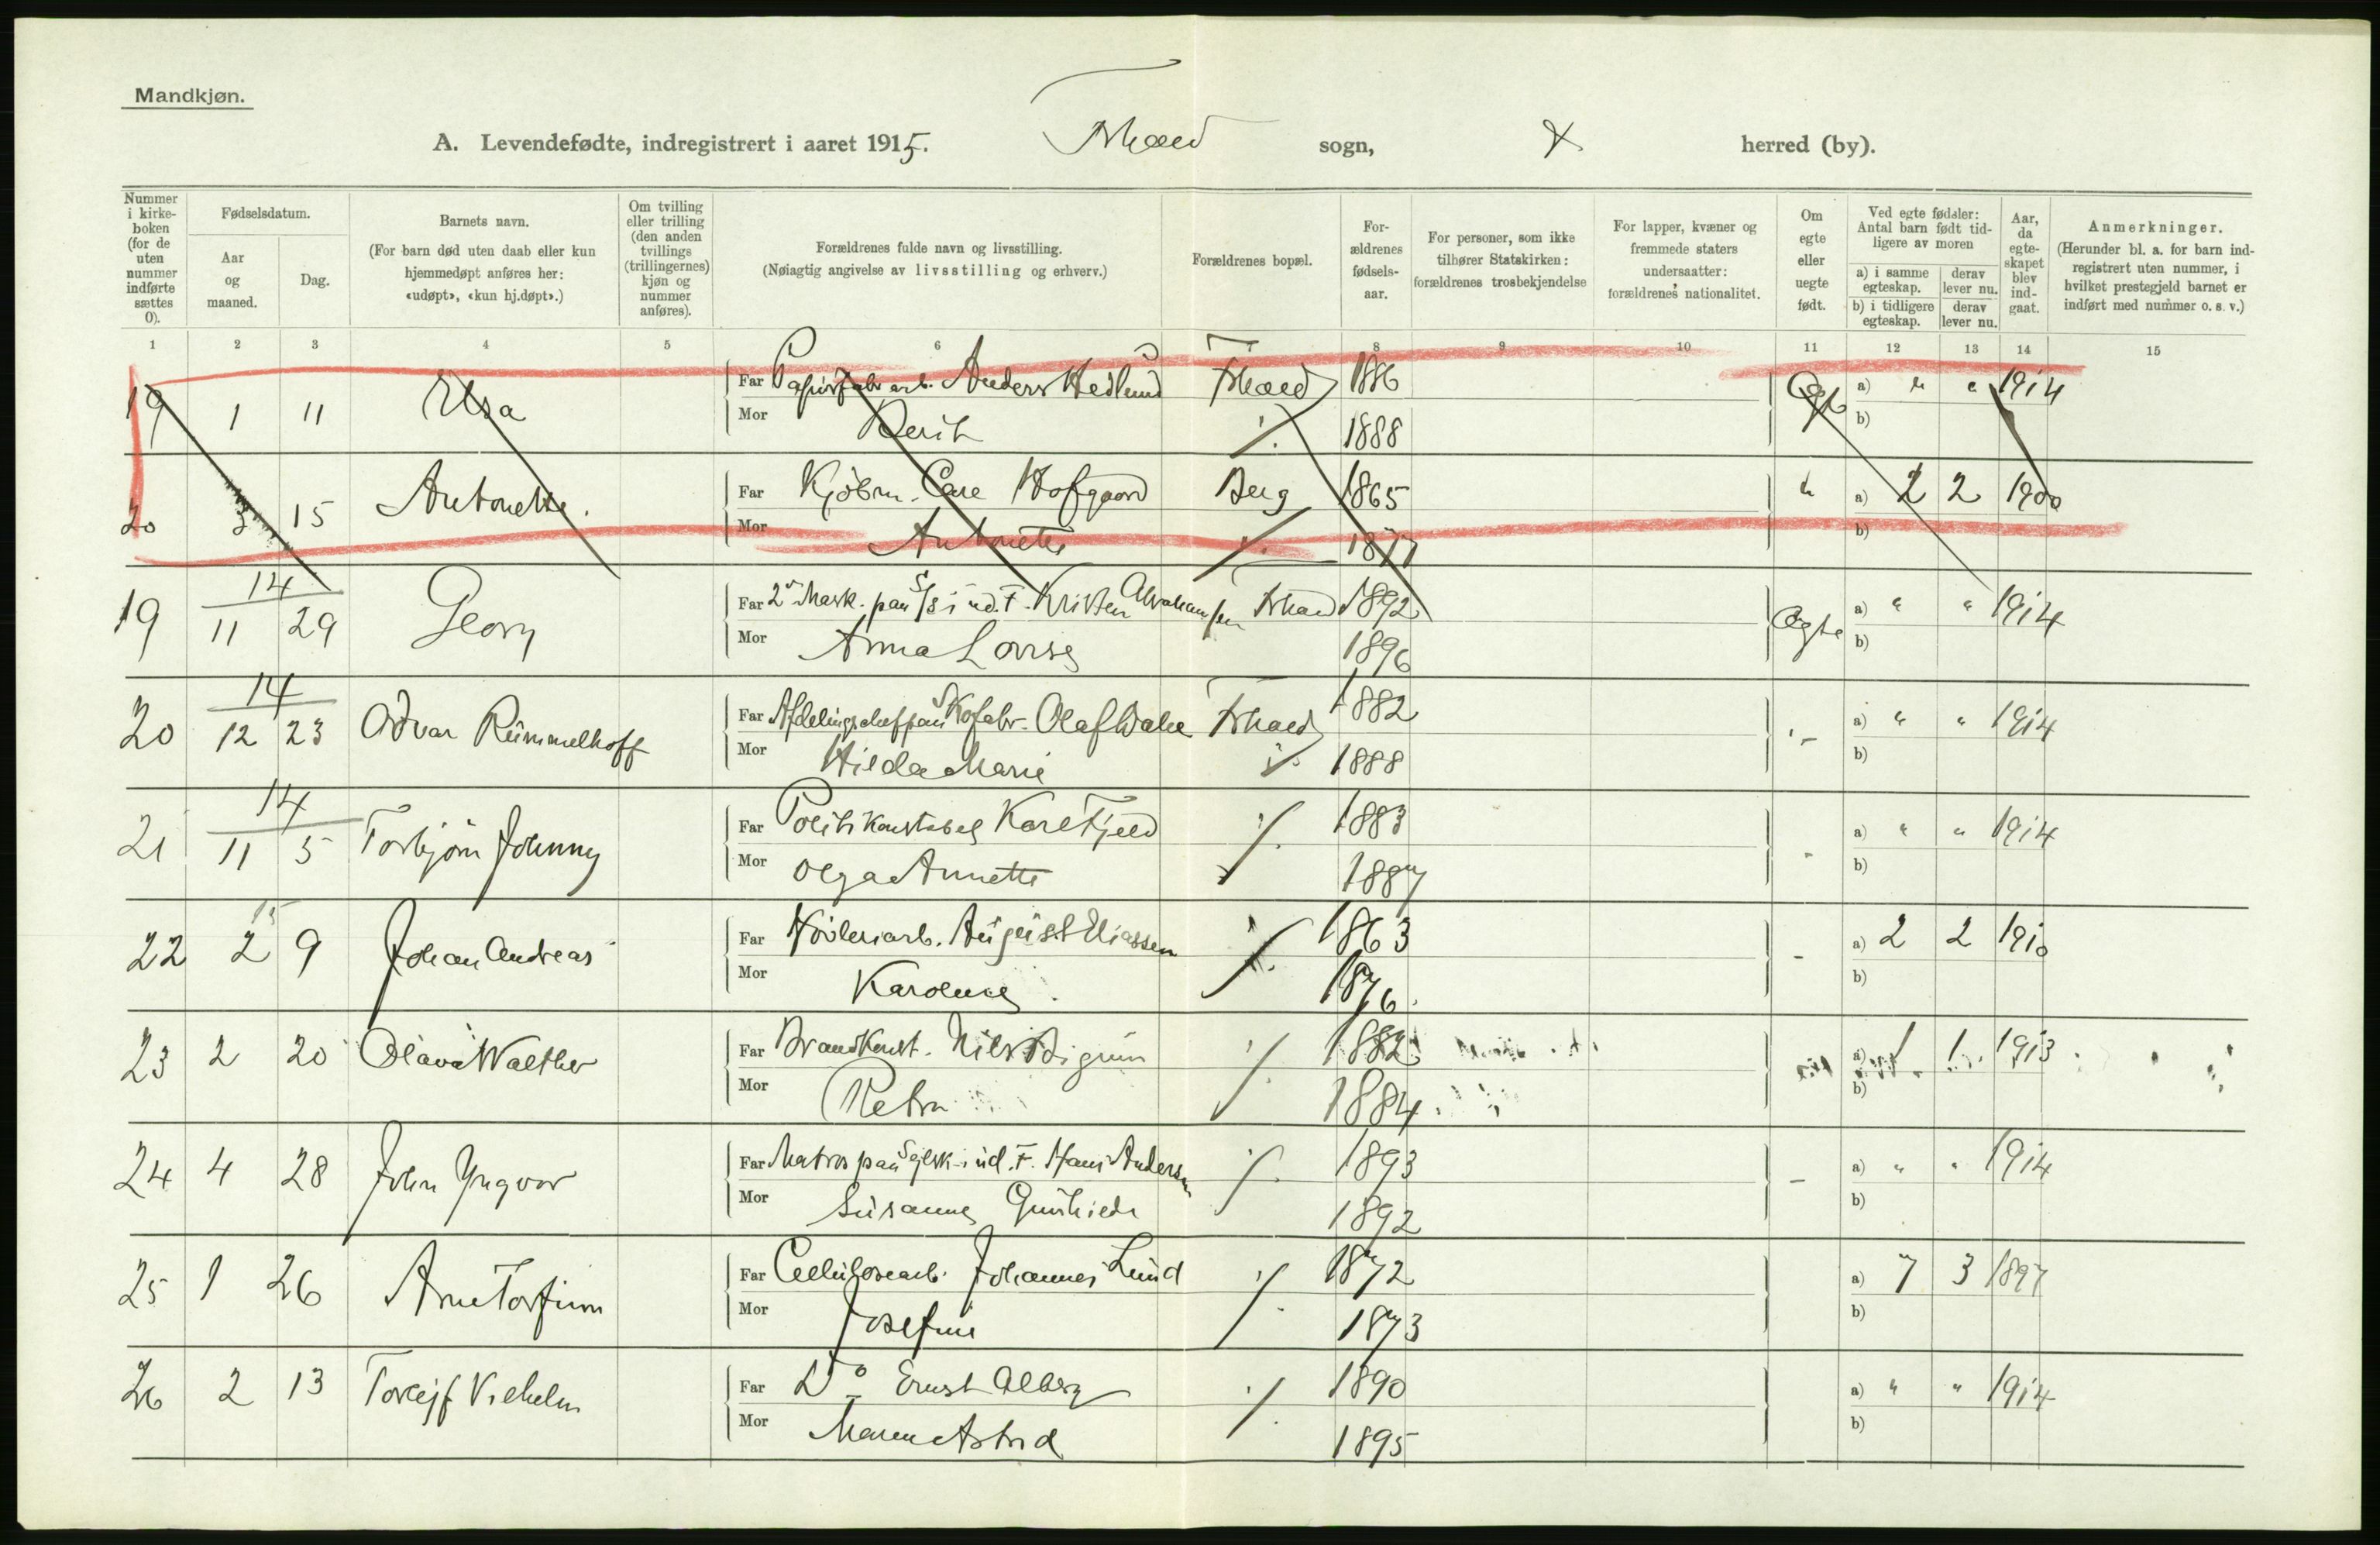 Mandkjøn.
A. Levendefødte, indregistrert i aaret 1915. Fkhald sogn, herred (by).
Nummer i kirkeboken (for de uten nummer indførte sættes 0).
Fødselsdatum.
Aar og maaned.
Dag.
Barnets navn.
(For barn død uten daab eller kun hjemmedøpt anføres her: «udøpt», «kun hj.døpt».)
Om tvilling eller trilling (den anden tvillings (trillingernes) kjøn og nummer anføres).
Forældrenes fulde navn og livsstilling.
(Nøiagtig angivelse av livsstilling og erhverv.)
Forældrenes bopæl.
Forældrenes fødselsaar.
For personer, som ikke tilhører Statskirken: forældrenes trosbekjendelse
For lapper, kvæner og fremmede staters undersaatter: forældrenes nationalitet.
Om egte eller uegte født.
Ved egte fødsler: Antal barn født tidligere av moren
a) i samme egteskap. derav lever nu.
b) i tidligere egteskap. derav lever nu.
Aar, da egteskapet blev indgaat.
Anmerkninger.
(Herunder bl. a. for barn indregistrert uten nummer, i hvilket prestegjeld barnet er indført med nummer o. s. v.)
1 2 3 4 5 6 7 8 9 10 11 12 13 14 15
19 1 11 Elsa Far Papirfabrarb. Anders Hedlund Fkhald 1886 Egte a) " " 1914
Mor Berit ./. 1888 b)
20 3 15 Antonette. Far Kjøbm. Carl Hofgaard Berg 1865 " a) 2 2 1900
Mor Antonette ./. 1877 b)
19 14 11 29 Georg Far 2' Mask. paa S/S i ud. F. Kristen Abrahamsen Fkhald 1892 Egte a) " " 1914
Mor Anna Lovise 1896 b)
20 14 12 23 Odvar Rümmelhoff Far Afdelingschef paa Skofabr. Olaf Dahl Fkhald 1882 a) " " 1914
Mor Hilda Marie ./. 1888 b)
21 14 11 5 Torbjørn Johnny Far Politikonstabel Karl Fjeld ./. 1883 - a) " " 1914
Mor Olga Annette 1887 b)
22 15 2 9 Johan Andreas Far Høvleriarb. August Eliassen ./. 1863 - a) 2 2 1910
Mor Karoline 1876 b)
23 2 20 Olava Walther Far Brandkonst. Nils ./. 1882 a) 1 1 1913
Mor Petra 1884 b)
24 4 28 John Yngvar Far Matros paa Sejlsk. i ud. F. Hans Andersen ./. 1893 - a) " " 1914
Mor Susanne 1892 b)
25 1 26 Arne Torfinn Far Cellulosearb. Johannes Lund ./. 1872 a) 7 3 1897
Mor Josefine 1873 b)
26 2 13 Torleif Vilhelm Far Do Ernst Alberg ./. 1890 a) " " 1914
Mor Maren Astrid 1895 b)